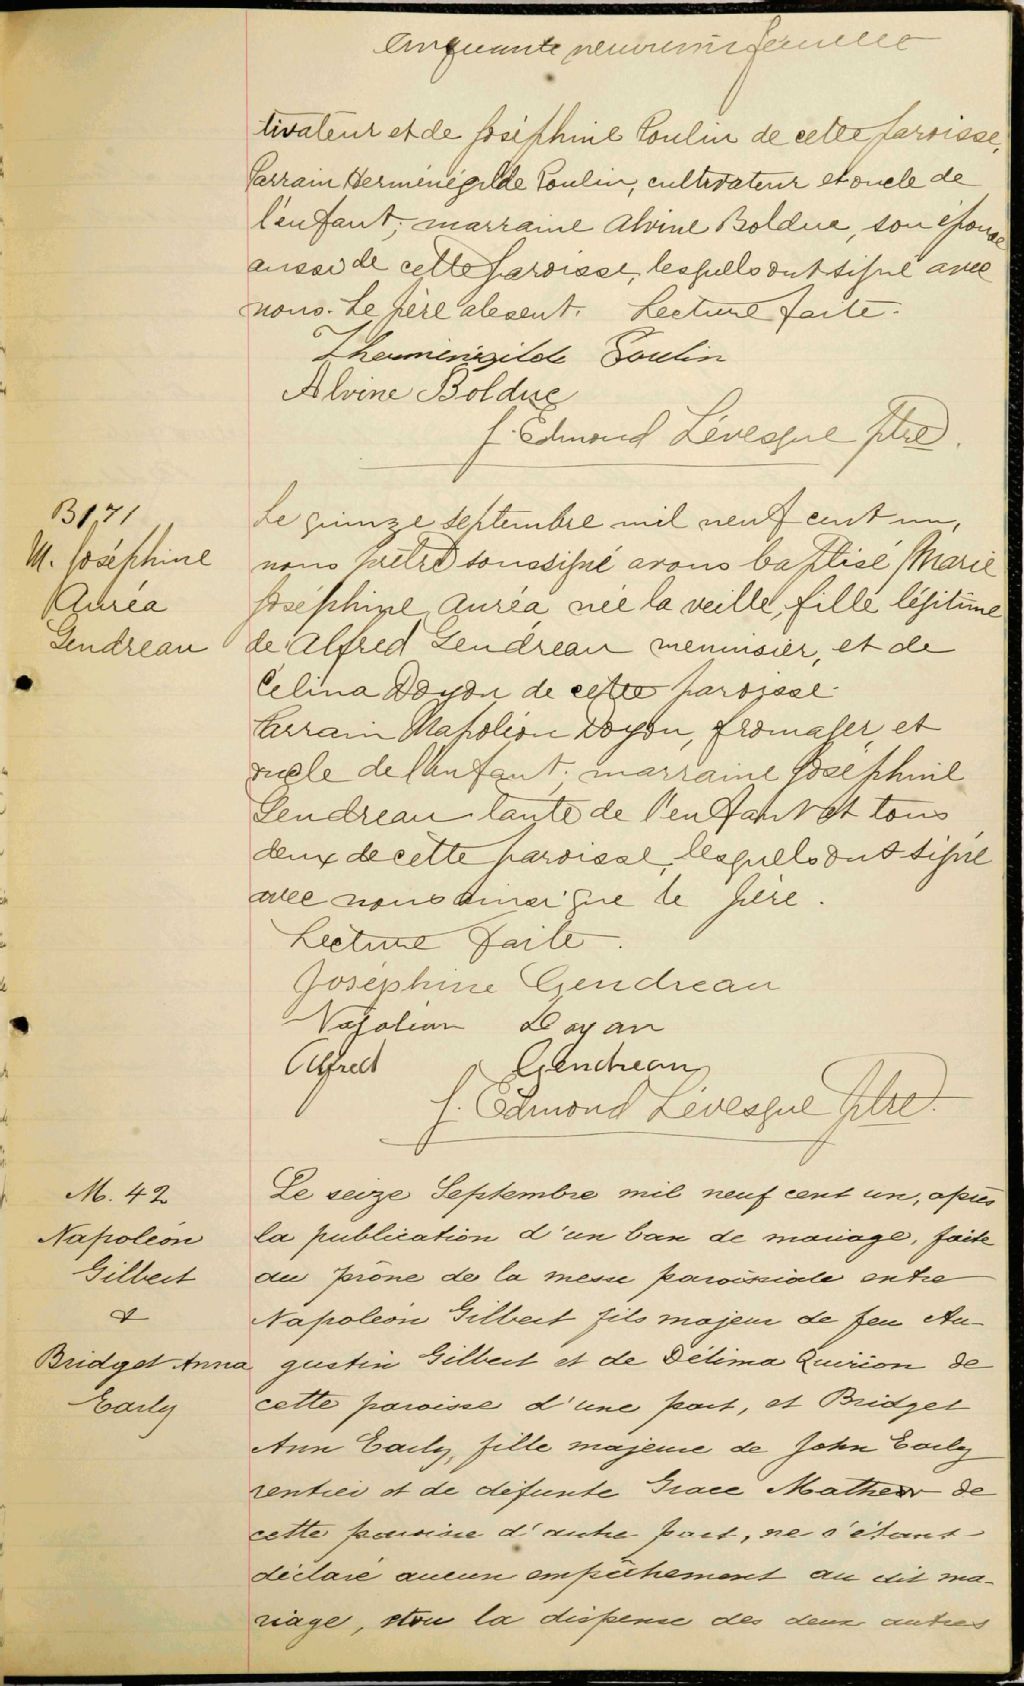 Cinquante neuvième feuillet
tivateur et de Joséphine Poulin de cette paroisse,
Parrain Herménégilde Poulin, cultivateur et oncle de
l'enfant; marraine Alvine Bolduc, son épouse
aussi de cette paroisse, lesquels ont signé avec
nous. Le père absent. Lecture faite.
Poulin
Alvine Bolduc
J. Edmond Lévesque ptre.
B 171
M. Joséphine
Auréa
Gendreau
Le quinze septembre mil neuf cent un,
nous prêtre soussigné avons baptisé Marie
Joséphine Auréa née la veille, fille légitime
de Alfred Gendreau menuisier, et de
Célina Doyon de cette paroisse.
Parrain Napoléon Doyon, fromager, et
oncle de l'enfant; marraine Joséphine
Gendreau tante de l'enfant et tous
deux de cette paroisse, lesquels ont signé
avec nous ainsi que le père.
Lecture faite.
Joséphine Gendreau
Napoléan Doyan
Alfred Gendreau
J. Edmond Lévesque ptre.
M. 42
Napoléon
Gilbert
&
Bridget Anna
Early
Le seize Septembre mil neuf cent un, après
la publication d'un ban de mariage, faite
au prône de la messe paroissiale entre
Napoléon Gilbert fils majeur de feu Au-
gustin Gilbert et de Délima Quirion de
cette paroisse d'une part, et Bridget
Ann Early, fille majeure de John Early
rentier et de défunte Grace Mathew de
cette paroisse d'autre part, ne s'étant
déclaré aucun empêchement au dit ma-
riage, vu la dispense des deux autres